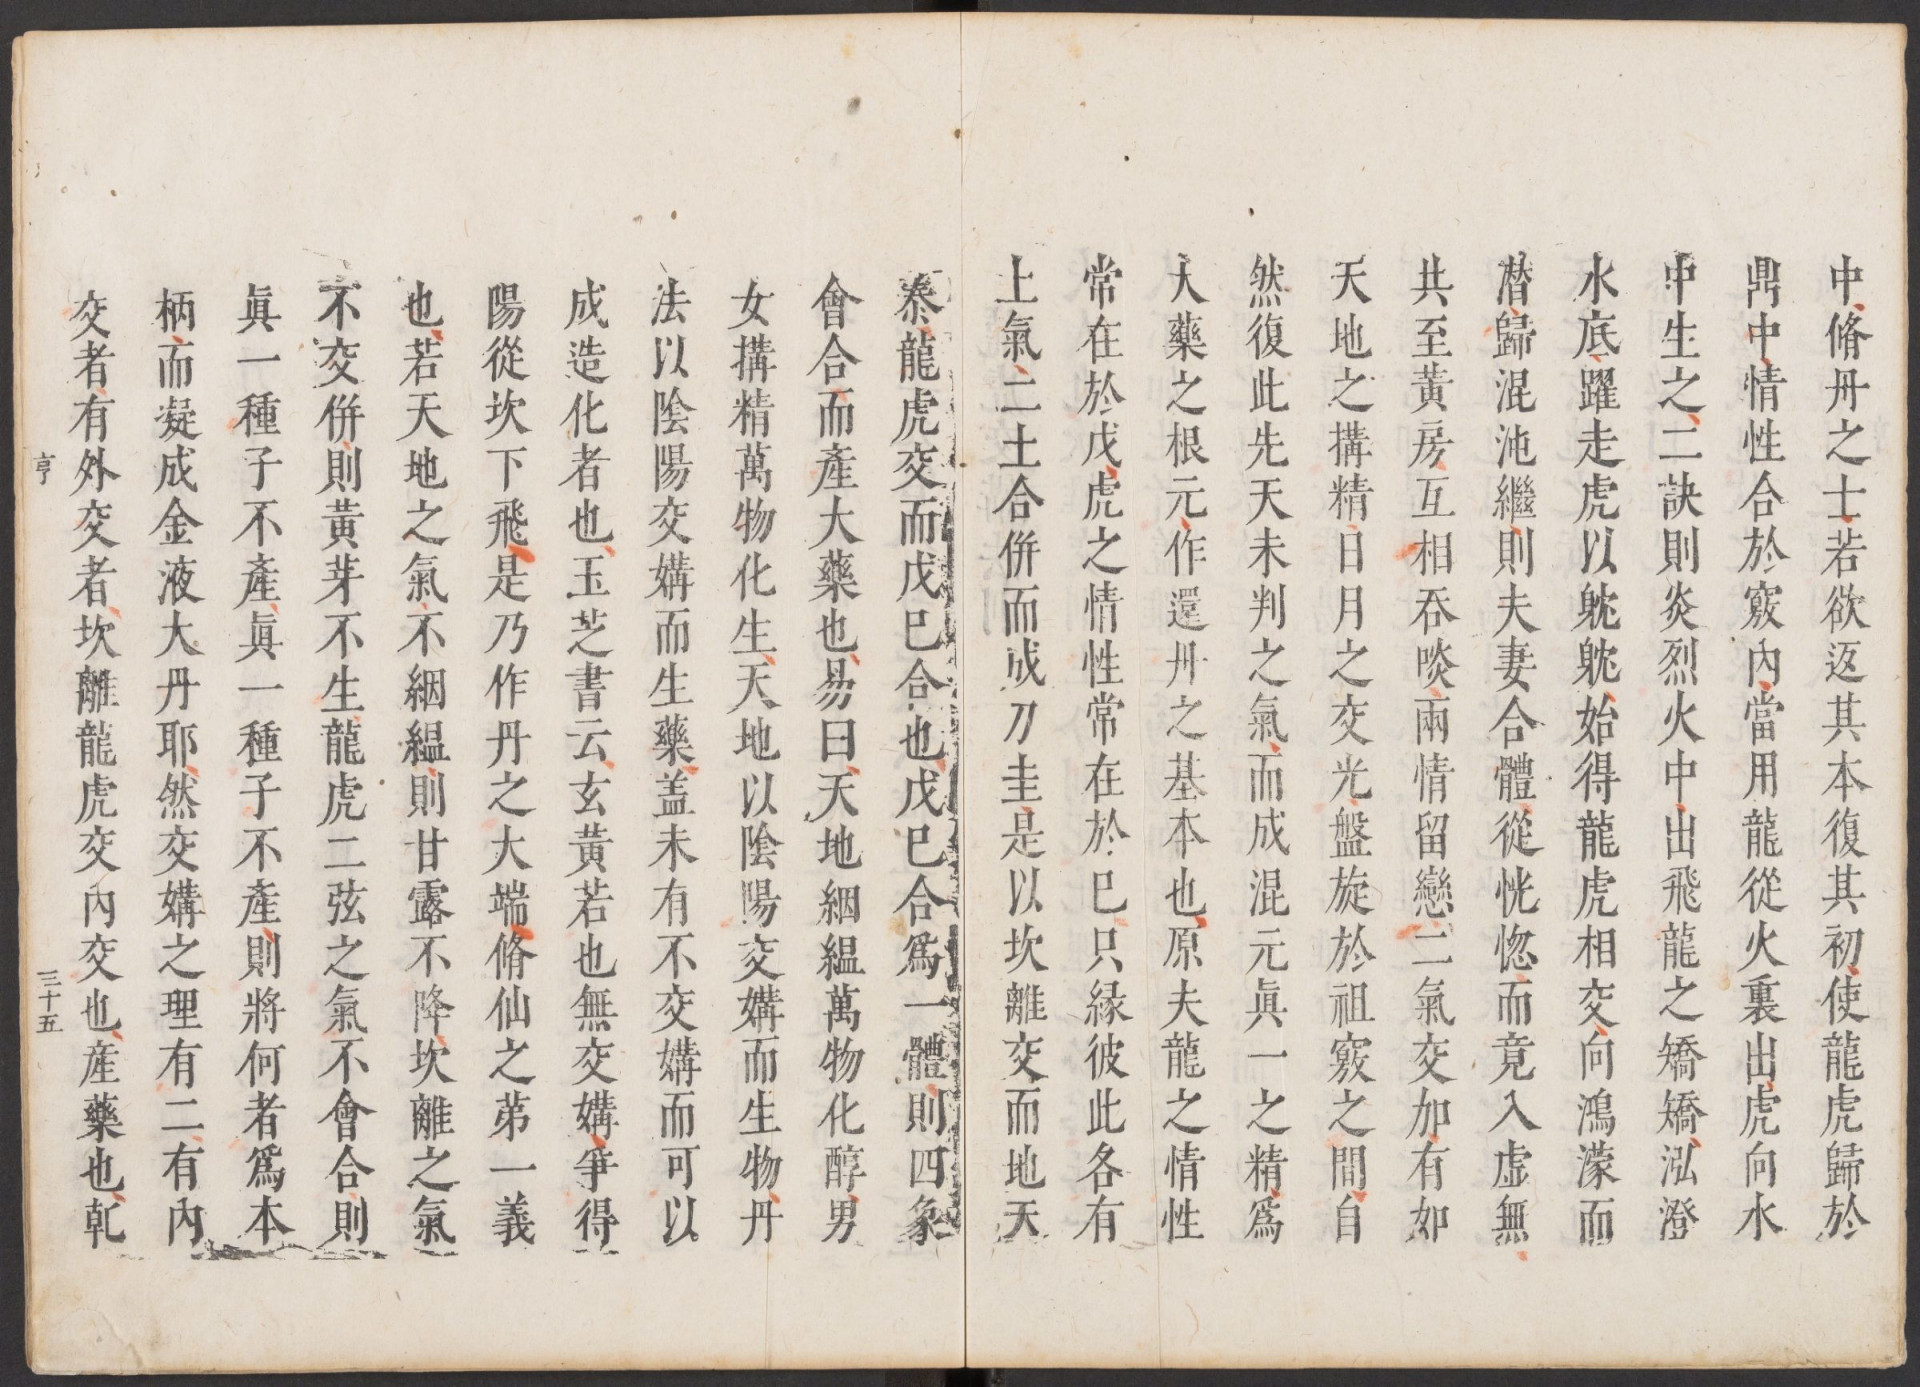 中脩丹之士若欲返其本復其初使龍虎歸於
鼎中情性合於竅內當用龍從火裏出虎向水
中生之二訣則炎烈火中出飛龍之矯矯泓澄
水底躍走虎以眈眈始得龍虎相交向鴻濛而
潛歸混沌繼則夫妻合體從恍惚而竟入虛無
共至黃房互相吞啖兩情留戀二氣交加有如
天地之搆精日月之交光盤旋於祖竅之間自
然復此先天未判之氣而成混元眞一之精爲
大藥之根元作還丹之基本也原夫龍之情性
常在於戊虎之情性常在於巳只緣彼此各有
上氣二土合併而成刀圭是以坎離交而地天
泰龍虎交而戊巳合也戊巳合爲一體則四象
會合而產大藥也易曰天地絪緼萬物化醇男
女搆精萬物化生天地以陰陽交媾而生物丹
法以陰陽交媾而生藥盖未有不交媾而可以
成造化者也玉芝書云玄黃若也無交媾爭得
陽從坎下飛是乃作丹之大端脩仙之苐一義
也若天地之氣不絪緼則甘露不降坎離之氣
不交併則黃芽不生龍虎二弦之氣不會合則
眞一種子不產眞一種子不產則將何者爲本
柄而凝成金液大丹耶然交媾之理有二有內
交者有外交者坎離龍虎交內交也產藥也乹
亨
三十五